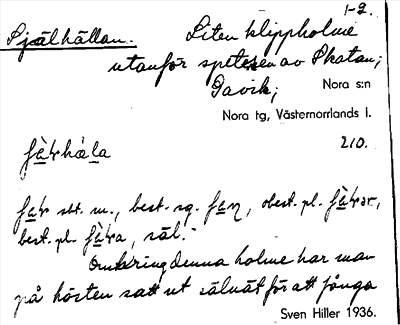 1-2.
Själhällan. Liten klippholme
utanför spetsen av Skatan;
Gavik; Nora s:n
Nora tg, Västernorrlands l.
fä̀khä̀la 210.
sbt. m., best. sg. obest. pl.
best. pl. säl.
Omkring denna holme har man
på hösten satt ut sälnät för att fånga
Sven Hiller 1936.